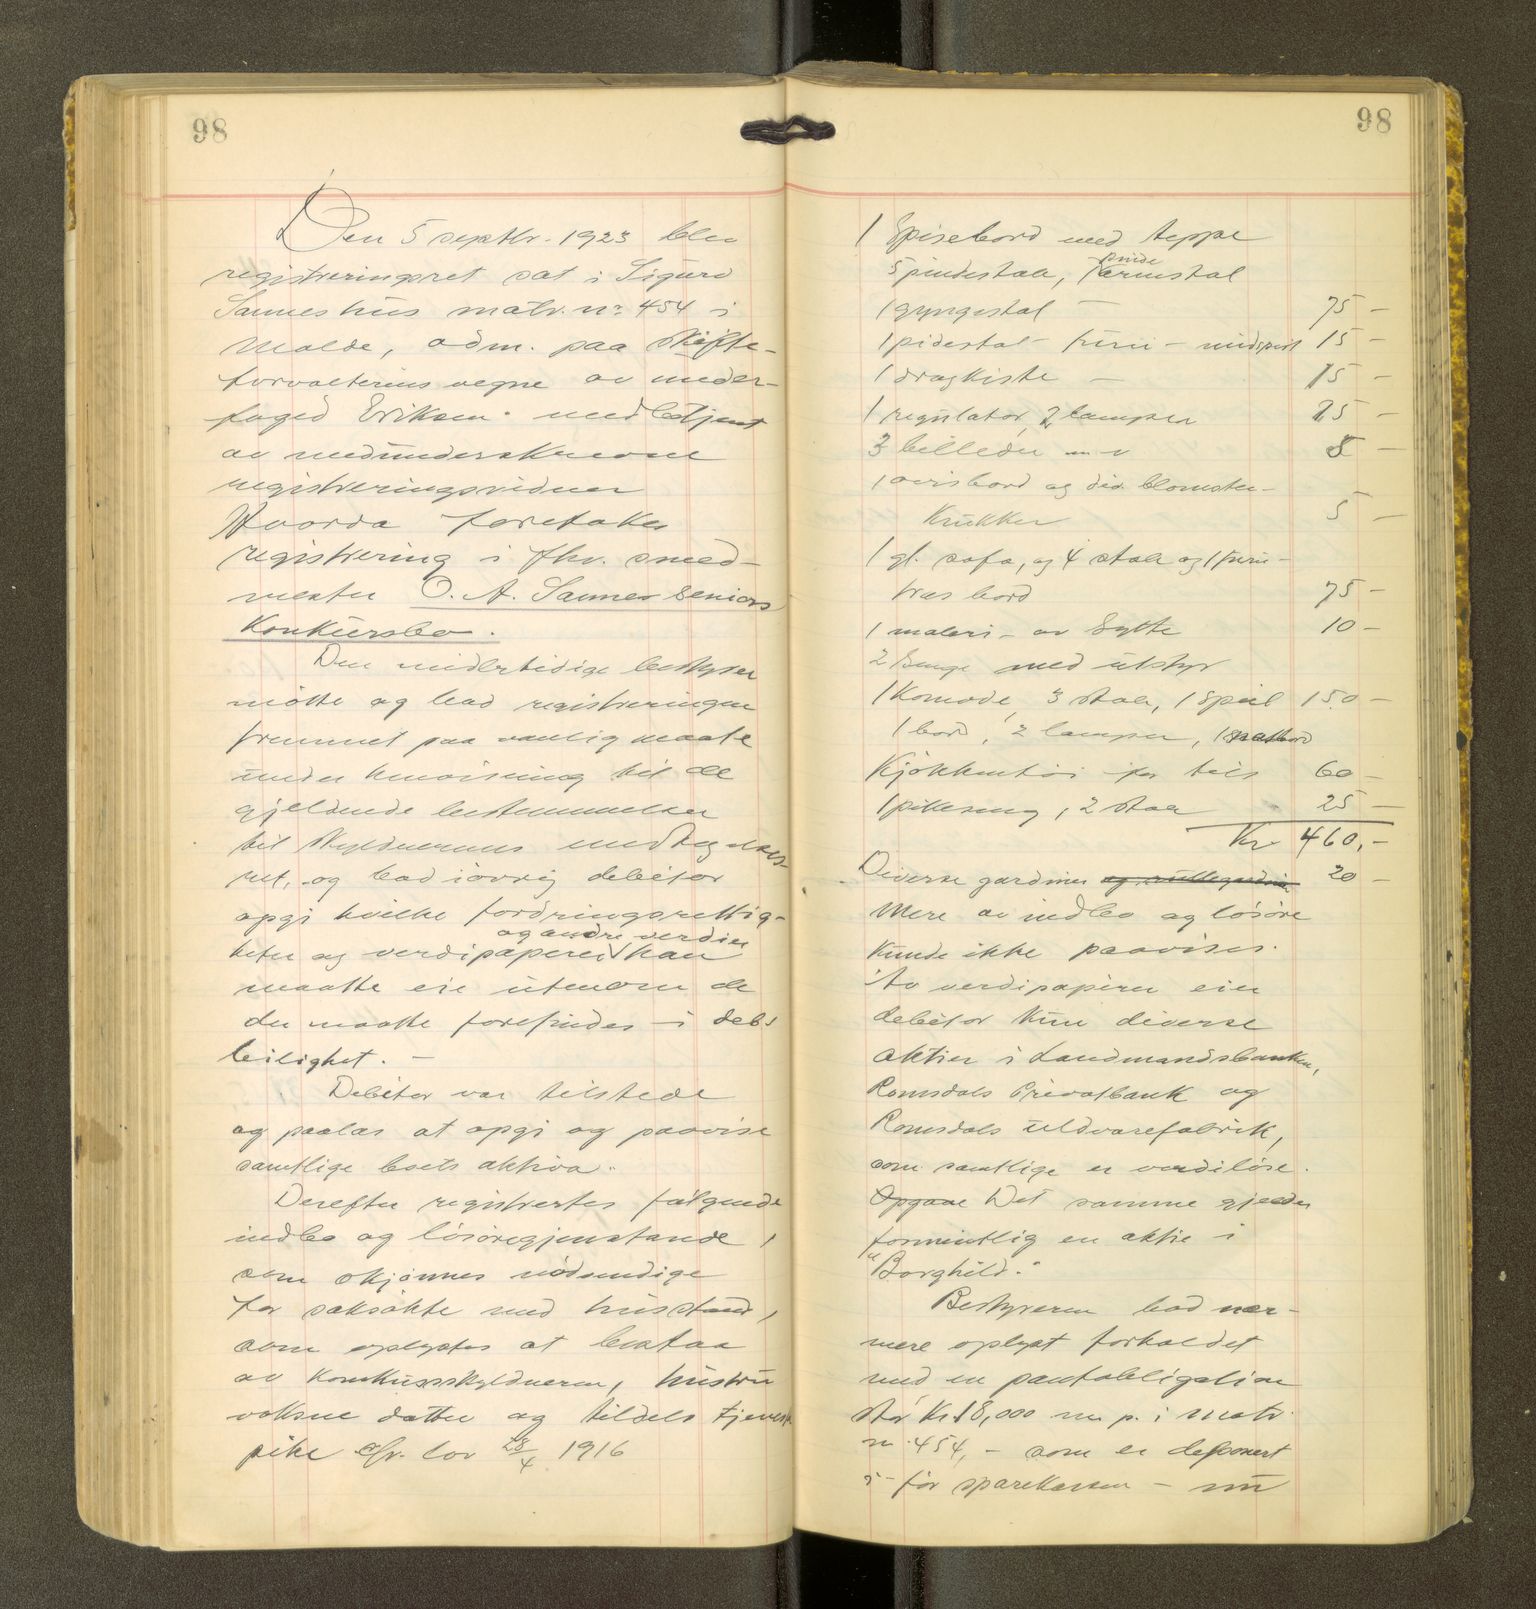 98
Den 5 septbr. 1923 blev
registreringsret sat i Sigurd
Sannes hus matr. nr 454 i
Molde, adm. paa skifte-
forvalterens vegne av under-
foged Eriksen med betjent
av medunderskrevne
registreringsvidner
Hvorda foretokes
registrering i fhv. smed-
mester O. A. Sannes seniors
Konkursbo.
Den midlertidige bestyrer
mötte og bad registreringen
fremmet paa vanlig maate
under henvisning til de
gjeldende bestemmelser
til skyldnerens
ret, og bad iövrig debitor
opgi hvilke fordringsrettig-
og andre verdier
heter og verdipapirer han
maatte eie utenom de
der maatte forefindes i dets
leilighet. -
Debitor var tilstede
og paalas at opgi og paavise
samtlige boets aktiva.
Derefter registrertes fölgende
indbo og lösöregjenstande,
som skjönnes nödvendige
for saksökte med husstand,
som oplystes at bestaa
av konkursskyldneren, hustru
voksne datter og tildels tjeneste
pike cfr. lov 28/4 1916
98
1 Spisebord med teppe
5 pindestole, 1 pinde armstol
1 gyngestol - 75 -
1 pidestal - furu - 15 -
1 dragkiste - 15 -
1 regulator, 2 lamper 25 -
3 billeder 5 -
1 avisbord og div. blomster-
krukker 5 -
1 gl. sofa, og 4 stole og 1 furu-
træs bord 75 -
1 maleri - av Sylte 10 -
2 senge med utstyr
1 Komode, 3 stole, 1 speil 150 -
1 bord, 2 lamper, 1 natbord
Kjökkentöi for tils 60 -
1 pikeseng, 2 stole 25 -
Kr 460,-
Diverse gardiner og rullegardiner 20 -
Mere av indbo og lösöre
kunde ikke paavises.
Av verdipapirer eier
debitor kun diverse
aktier i Landmandsbanken,
Romsdals Privatbank og
Romsdals uldvarefabrik,
som samtlige er verdilöse.
Opgave Det samme gjelder
formentlig en aktie i
"Borghild."
Bestyreren bad nær-
mere oplyst forholdet
med en pantobligation
stor Kr 18,000 m. p. i matr.
nr. 454, - som er deponert
i - for sparekassen - nu